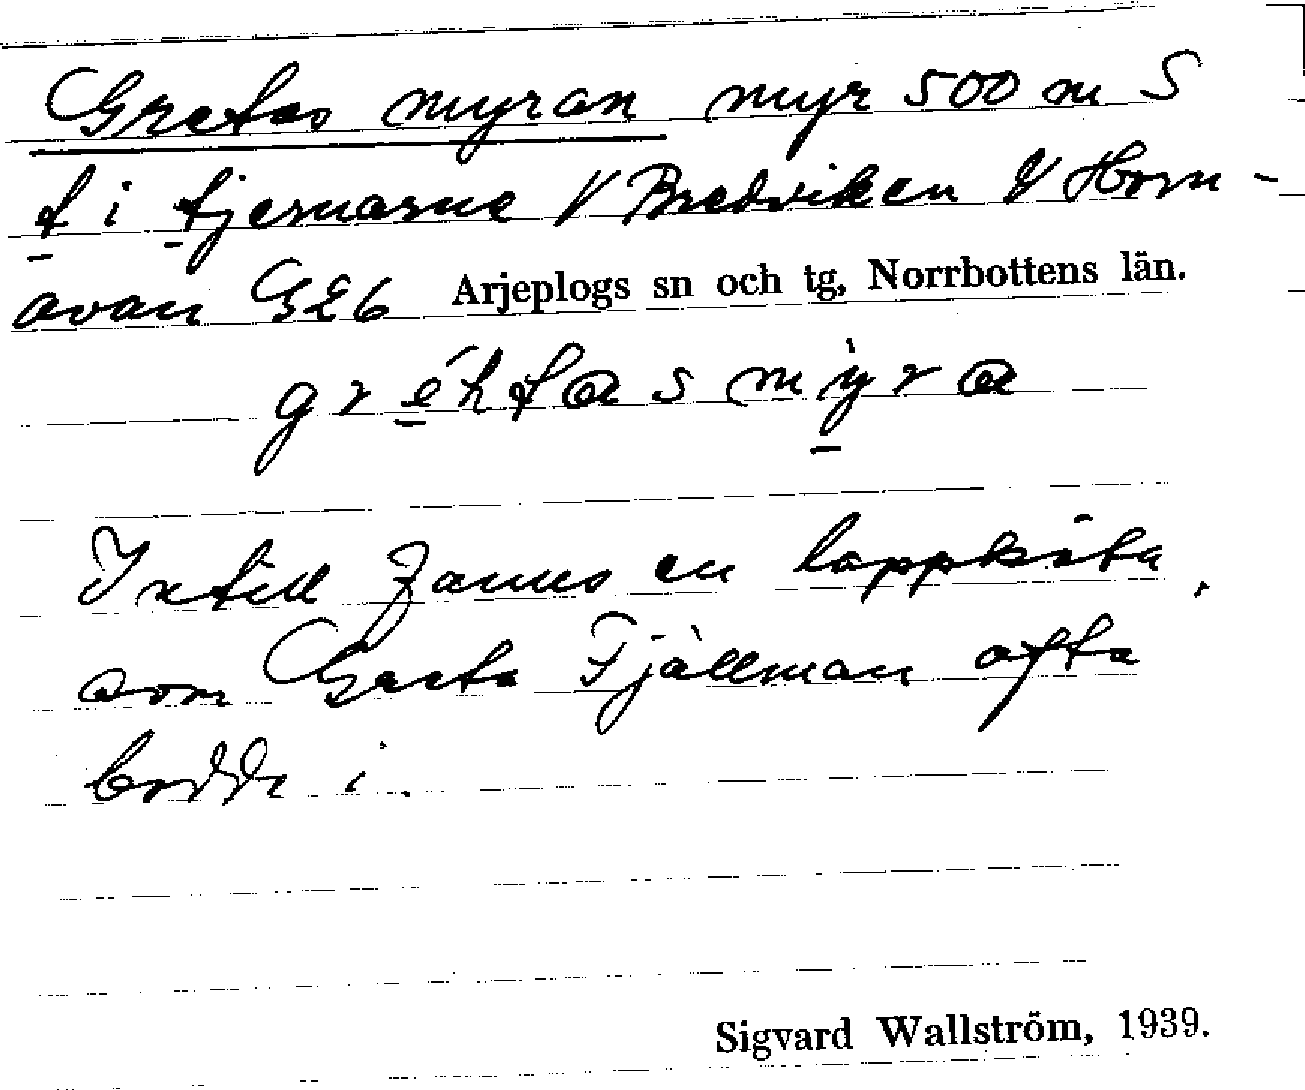 Gretas myran myr 500 m S
t i tjernarne V Bredviken V Horn-
avan G2b Arjeplogs sn och tg, Norrbottens län.
gréhtasmyra
Intill fanns en lappkåta,
som Greta Fjällman ofta
bodde i.
Sigvard Wallström, 1939.